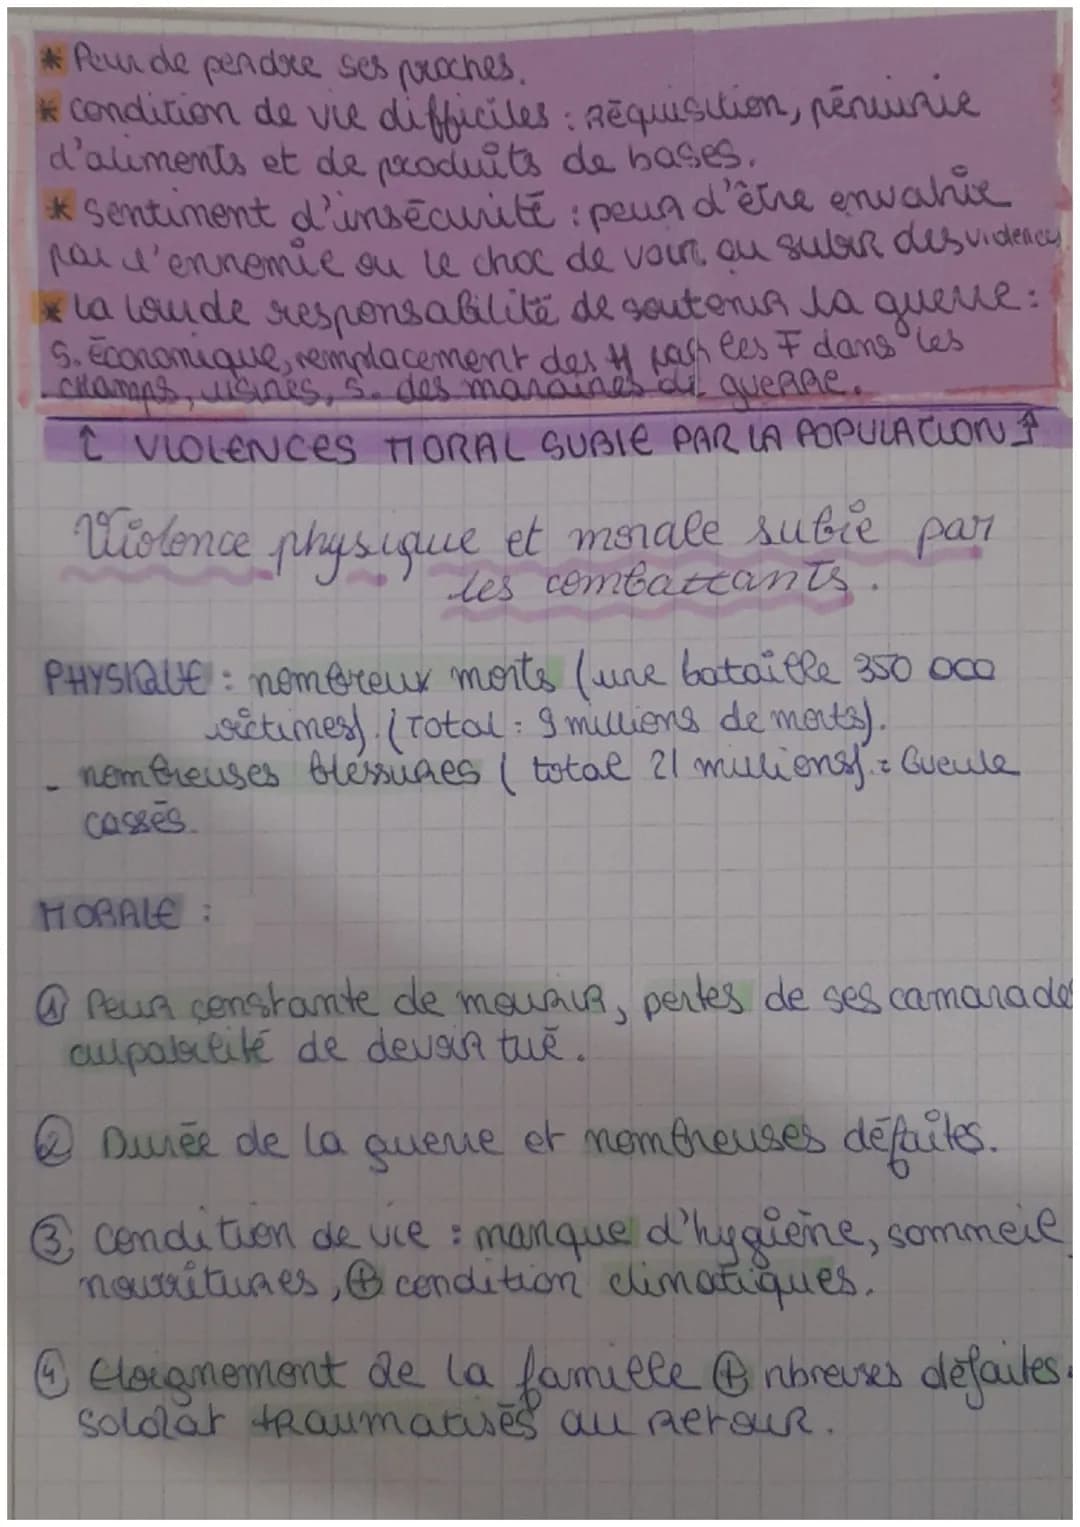 * Peur de perdre ses proches.
* condition de vie difficiles : Réquisition, pénurie
d'aliments et de produits de bases.
* Sentiment d'insécurité : peur d'être envahie
par l'ennemie ou le choc de voir ou subir des violences
* la lourde responsabilité de soutenir la guerre :
S. Économique, remplacement des H par les F dans les
champs, usines, S. des marraines de guerre.
↑ VIOLENCES MORAL SUBIE PAR LA POPULATION ↑
Violence physique et morale subie par
les combattants.
PHYSIQUE : nombreux morts (une bataille 350 000
victimes). (Total : 9 millions de morts).
- nombreuses blessures ( total 21 millions). = Gueule
cassés.
MORALE :
① Peur constante de mourir, pertes de ses camarades
culpabilité de devoir tué.
② Durée de la guerre et nombreuses défaites.
③ condition de vie : manque d'hygiène, sommeil
nourritures, ⊕ condition climatiques.
④ Eloignement de la famille ⊕ nbreuses défaites.
soldat traumatisés au retour.